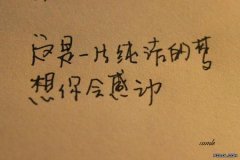 这是一片纯洁的梦
想你会感动